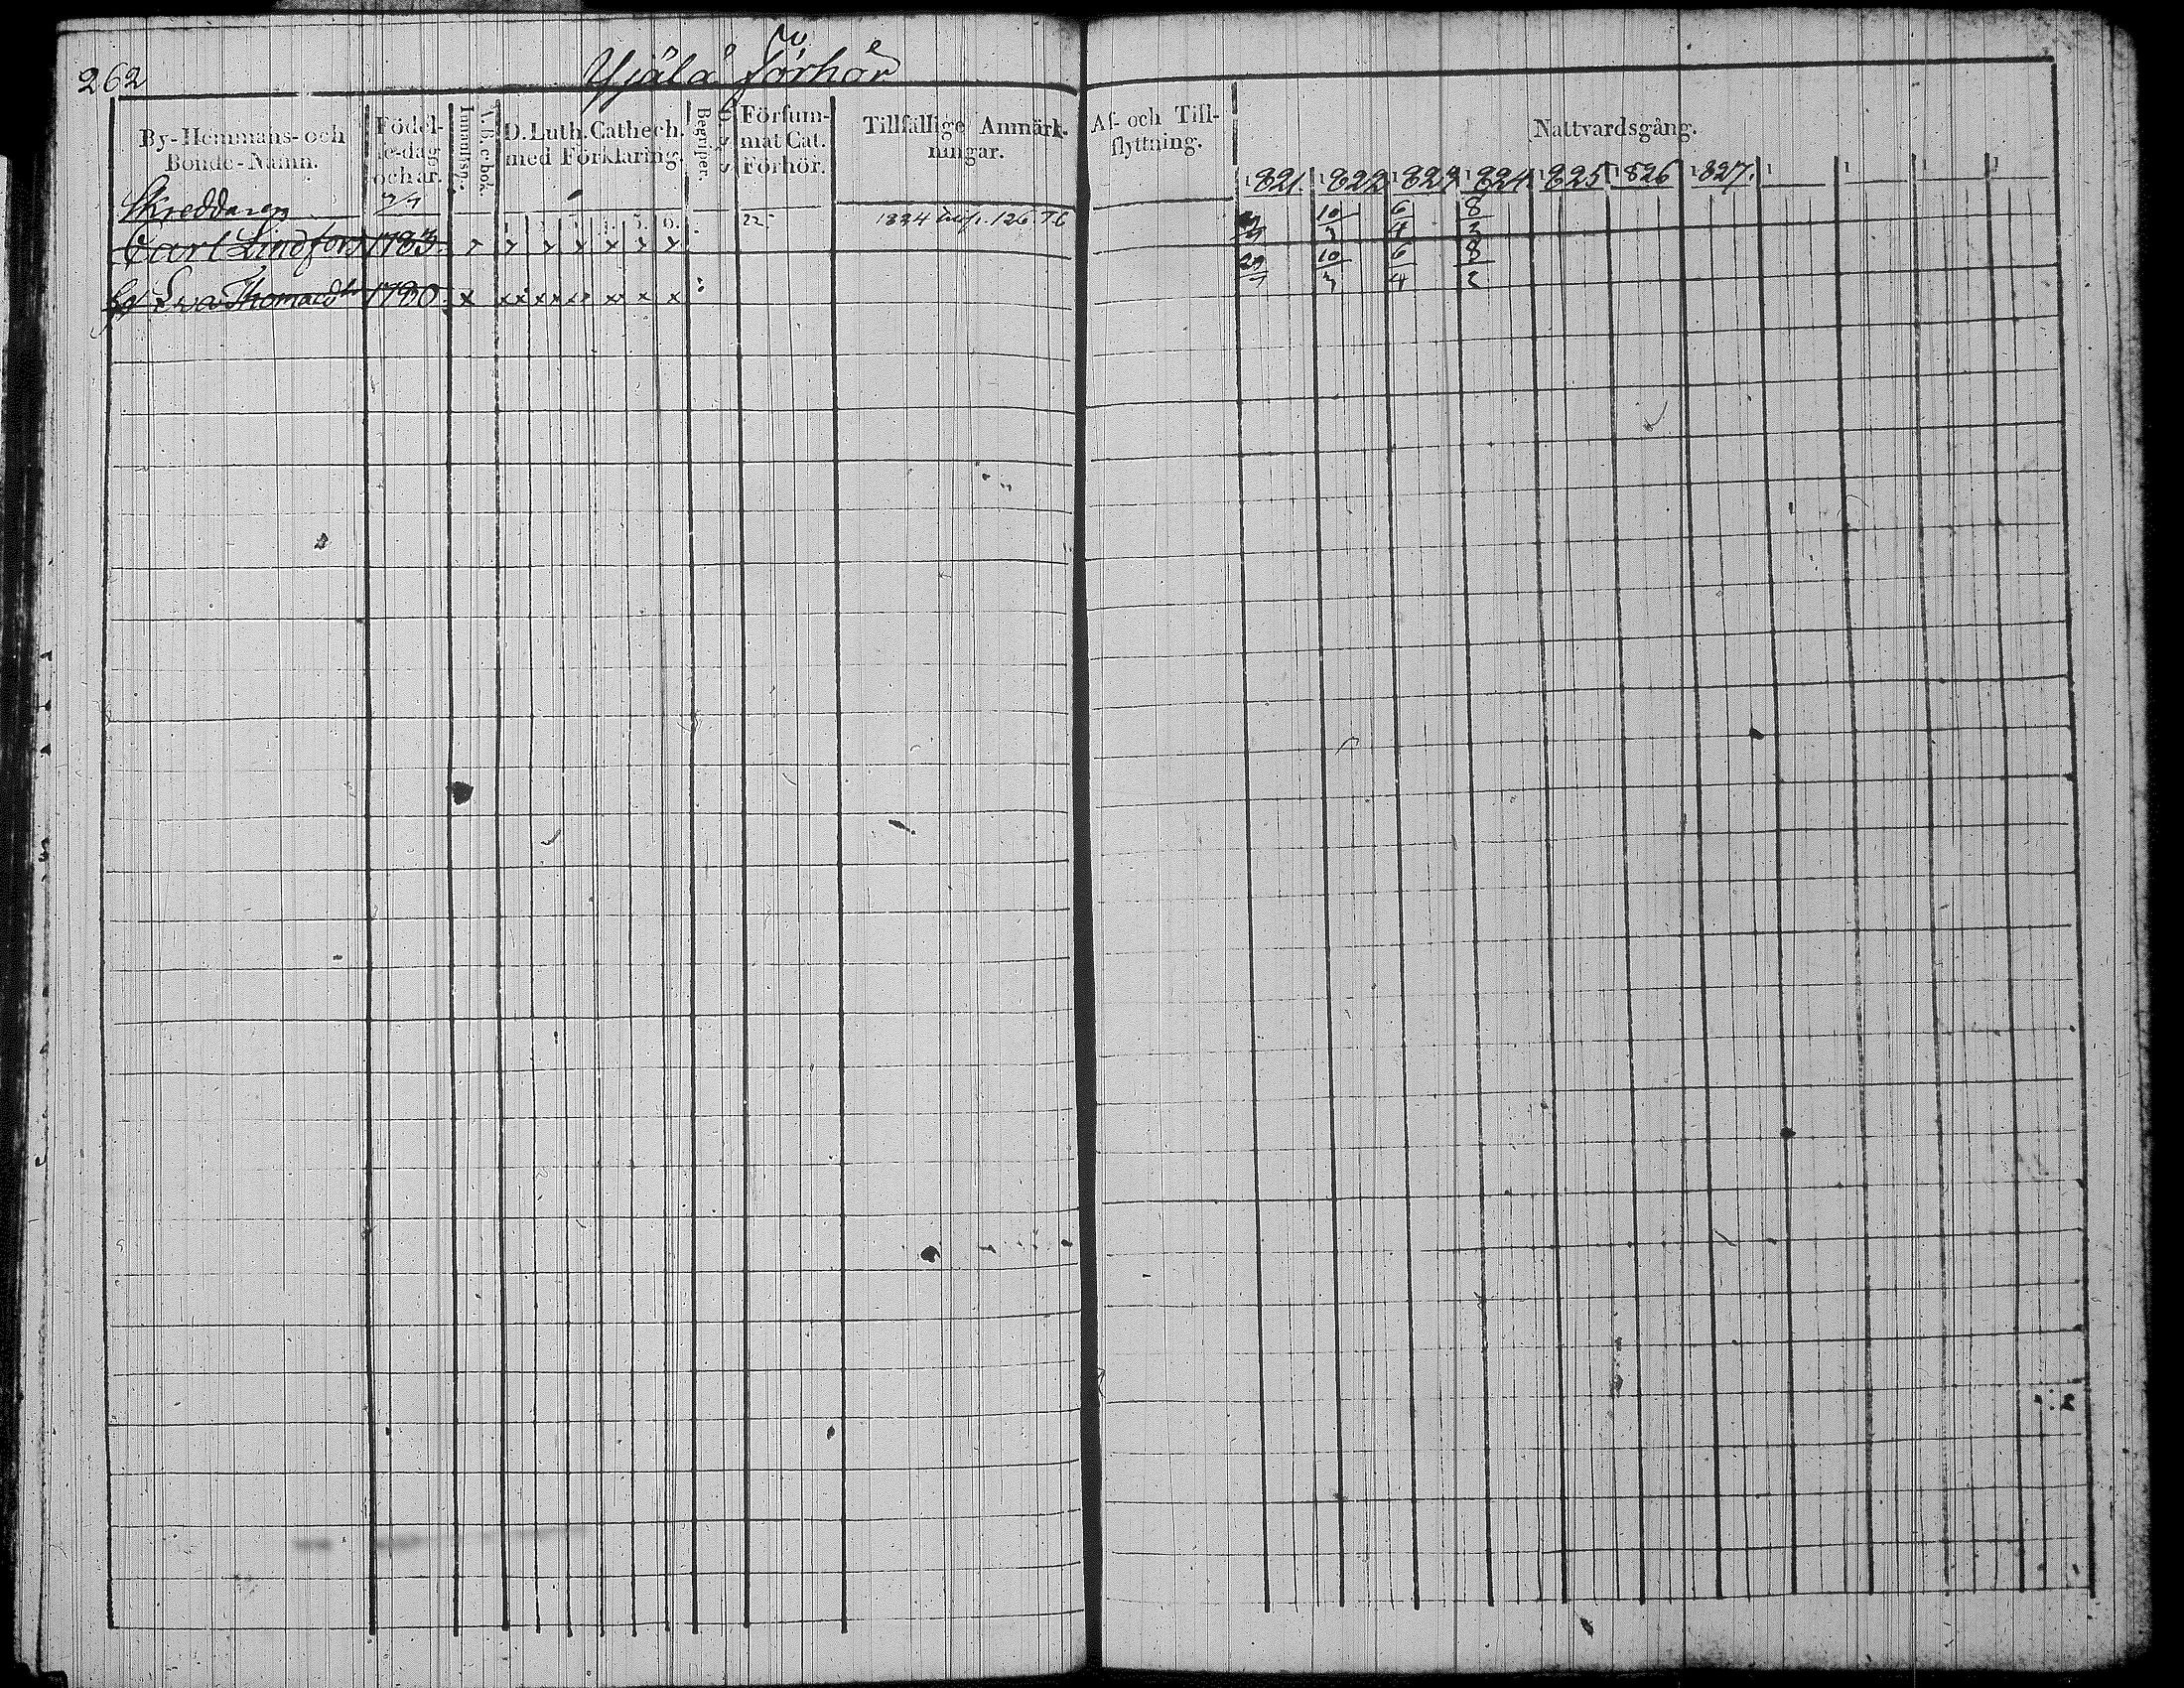 262
Yjälä Förhör
By-Hemmans- och Bonde-Namn.
Födelse-dag och år.
Innanläsn.
A. B. c bok.
D. Luth. Cathech. med Förklaring.
Begriper.
Försummat Cat. Förhör.
Tillfällige Anmärkningar.
Af- och Tillflyttning.
Nattvardsgång.
1821 1822 1823 1824 1825 1826 1827. 1 1 1 1
Skreddaren
Carl Lindfors 1783 x x x x x x x 22 1824 126 10/3 6/4 8/3
Eva Thomasdr 1780 x x x x x x x x 29 10/3 6/4 8